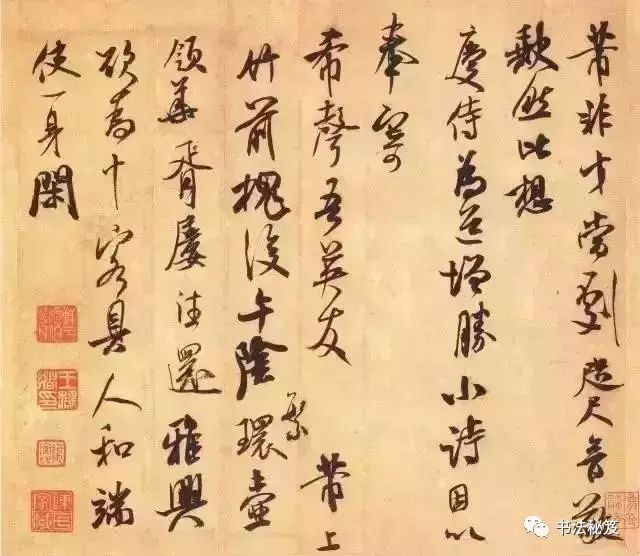 芾非才當劇咫尺音敬
缺然比想
慶侍為道增勝小詩因以
奉寄
希聲吾英友 芾上
竹前槐後午陰環壺
領華胥屢往還雅興
欲為十客具人和端
使一身閑
书法秘笈